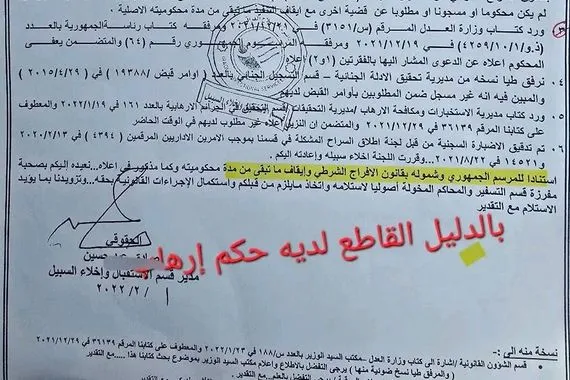 لم يكن محكوما او مسجونا او مطلوبا عن قضية اخرى مع ايقاف التنفيذ ما تبقى من مدة محكوميته الاصلية .
ورد كتاب وزارة العدل المرقم (س/٣١٥١) في
ومرفقه كتاب رئاسة الجمهورية بالعدد
(ذ.و/٤٢٥٩/١٠/١) في ٢٠٢١/١٢/١٩ ومرفقه المرسوم الجمهوري رقم (٦٤) والمتضمن يعفى
المحكوم اعلاه عن الدعوى المشار اليها بالفقرتين (١و٢) اعلاه
٤. نرفق طيا نسخه من مديرية تحقيق الادلة الجنائية - قسم التسجيل الجنائي بالعدد ( اوامر قبض /١٩٣٨٨ ) في (٢٠١٥/٤/٢٩)
والمبين فيه انه غير مسجل ضمن المطلوبين بأوامر القبض لديهم
٥. ورد كتاب مديرية الاستخبارات ومكافحة الارهاب /مديرية التحقيقات /قسم التحقيق في الجرائم الارهابية بالعدد ١٦١ في ٢٠٢٢/١/١٩ والمعطوف
على كتابنا المرقم ٣٦١٣٩ في ٢٠٢١/١٢/٢٩ والمتضمن ان النزيل اعلاه غير مطلوب لديهم في الوقت الحاضر
٦. تم تدقيق الاضبارة السجنية من قبل لجنة إطلاق السراح المشكلة في قسمنا بموجب الامرين الاداريين المرقمين ( ٤٣٩٤ ) في ٢٠٢٠/٢/١٣
و١٤٥٢١ في ٢٠٢١/٨/٢٢ ...وقررت اللجنة اخلاء سبيله وإعادته اليكم .
استنادا للمرسم الجمهوري وشموله بقانون الافراج الشرطي وإيقاف ما تبقى من مدة محكوميته وكما مذكور في اعلاه...نعيده إليكم بصحبة
مفرزة قسم التسفير والمحاكم المخولة أصوليا لاستلامه واتخاذ مايلزم من قبلكم واستكمال الإجراءات القانونية بحقه...وتزويدنا بما يؤيد
الاستلام مع التقدير
بالدليل القاطع لديه حكم إرهاب
الحقوقي
حسين
مدير قسم الاستقبال وإخلاء السبيل
٢٠٢٢/٢/١
نسخة منه إلى :-
• قسم الشؤون القانونية /إشارة الى كتاب وزارة العدل -مكتب السيد الوزير بالعدد س/١٨٨ في ٢٠٢٢/١/٢٣ والمعطوف على كتابنا المرقم ٣٦١٣٩ في ٢٠٢١/١٢/٢٩
( والمرفق طيا نسخة ضوئية منها ) يرجى التفضل بالاطلاع وإعلام مكتب السيد الوزير بموضوع بحث كتابنا هذا ....مع التقدير